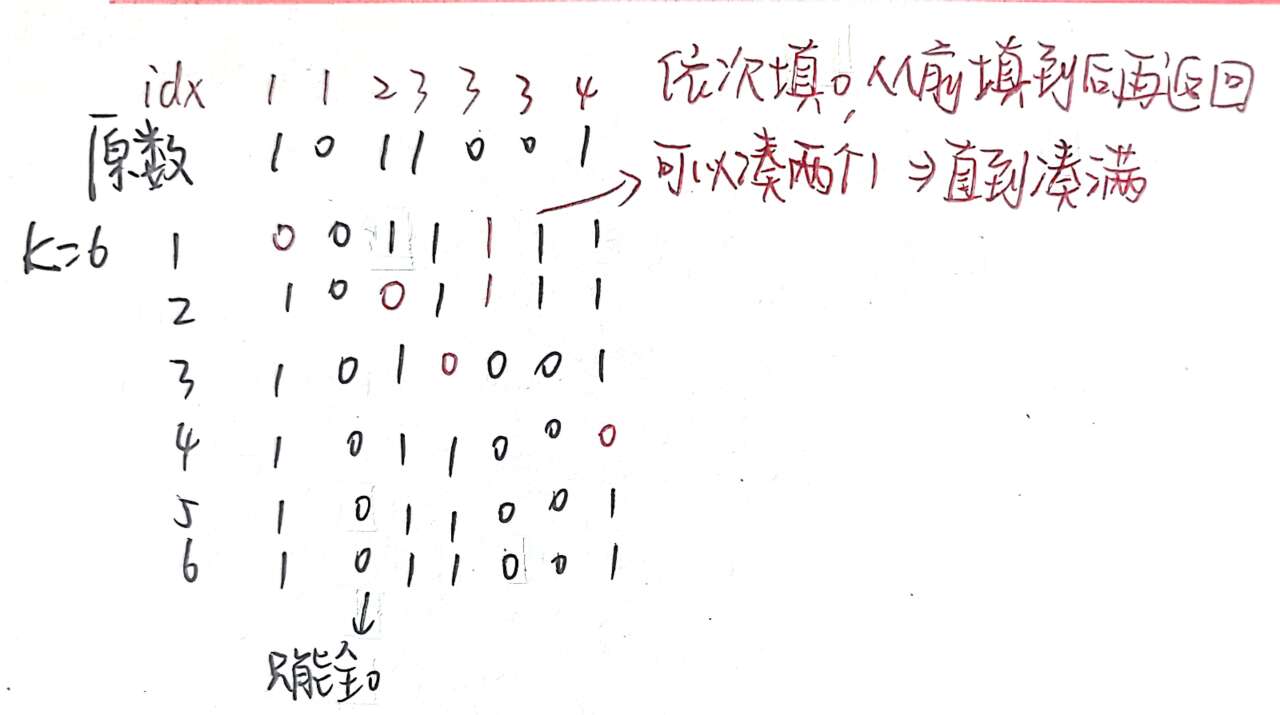 idx 1 1 2 3 3 3 4 依次填0,从前填到后再返回
原数 1 0 1 1 0 0 1 可以凑两个1 ⇒ 直到凑满
K=6 1 0 0 1 1 1 1 1
2 1 0 0 1 1 1 1
3 1 0 1 0 0 0 1
4 1 0 1 1 0 0 0
5 1 0 1 1 0 0 1
6 1 0 1 1 0 0 1
只能全0